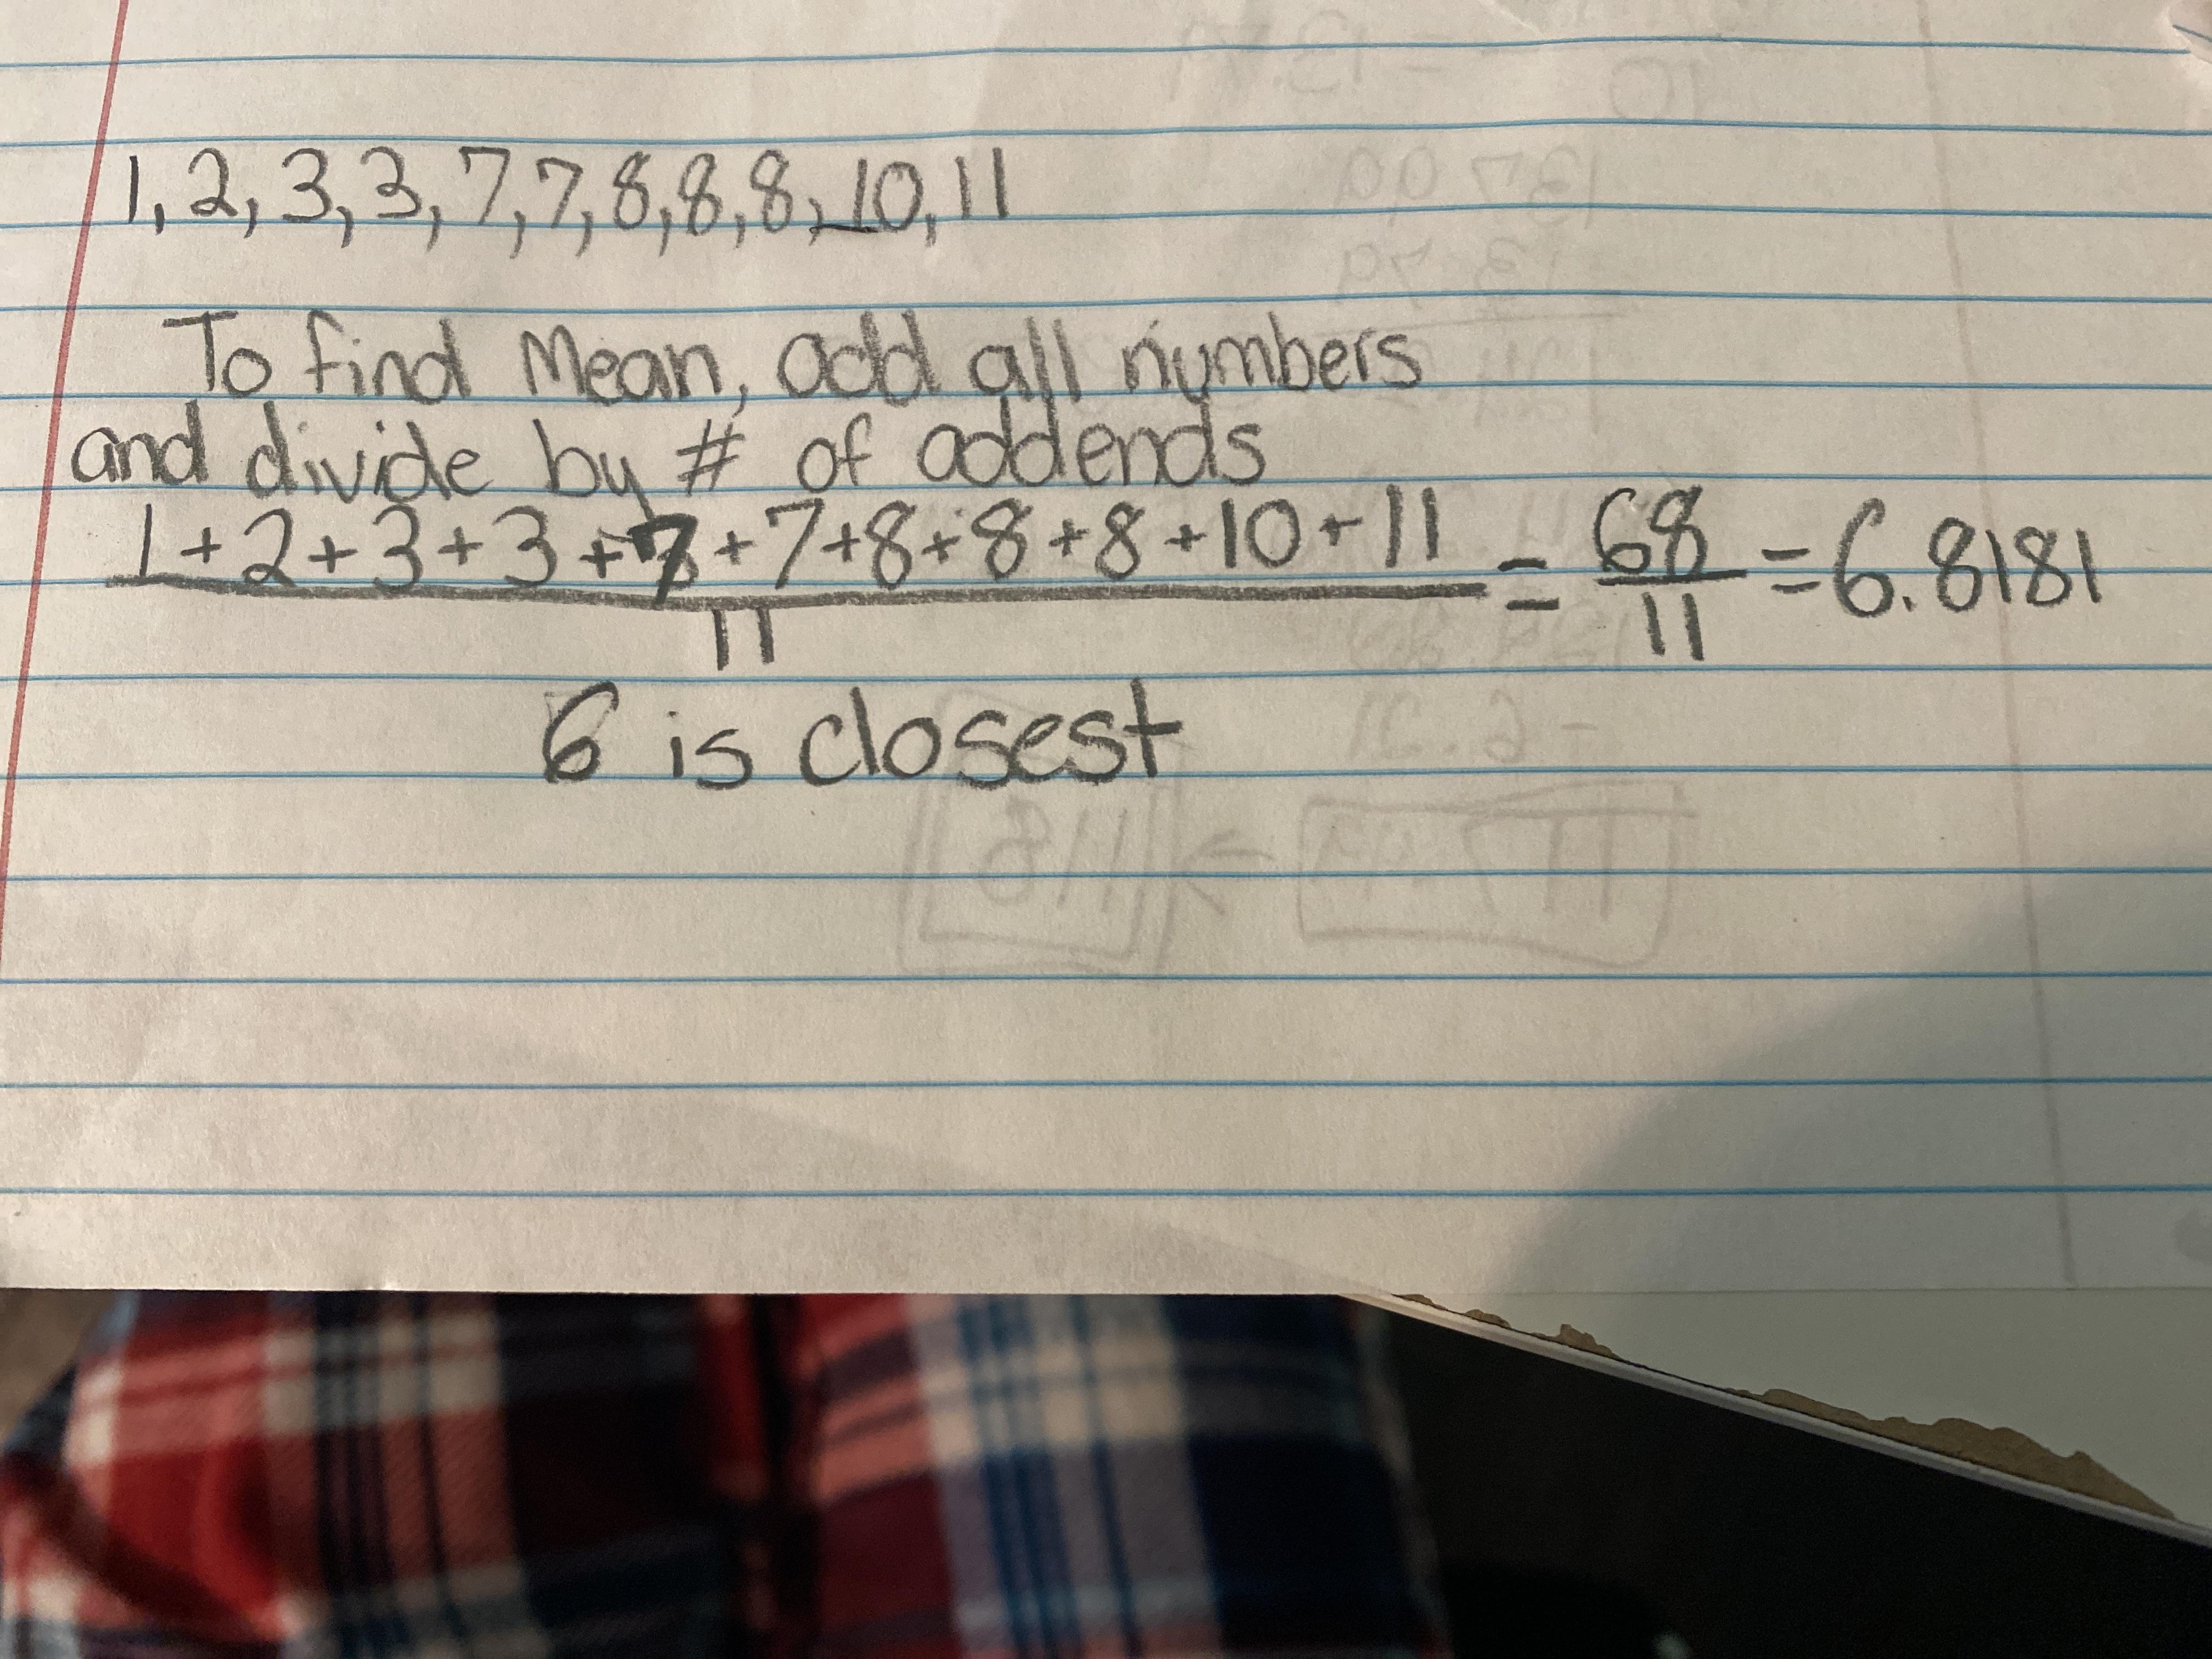 1, 2, 3, 3, 7, 7, 8, 8, 8, 10, 11
To find Mean, add all numbers
and divide by # of addends
1+2+3+3+7+7+8+8+8+10+11 = 68 = 6.8181
11 11
6 is closest